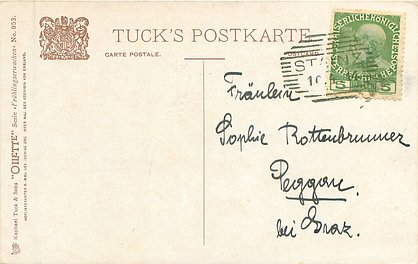 TUCK'S POSTKARTE
CARTE POSTALE.
Raphael Tuck & Sons "OILETTE" Serie «Frühlingserwachen» No. 953.
ST
10
5 5
Fräulein
Sophie Rottenbrunner
Peggau
bei Graz.